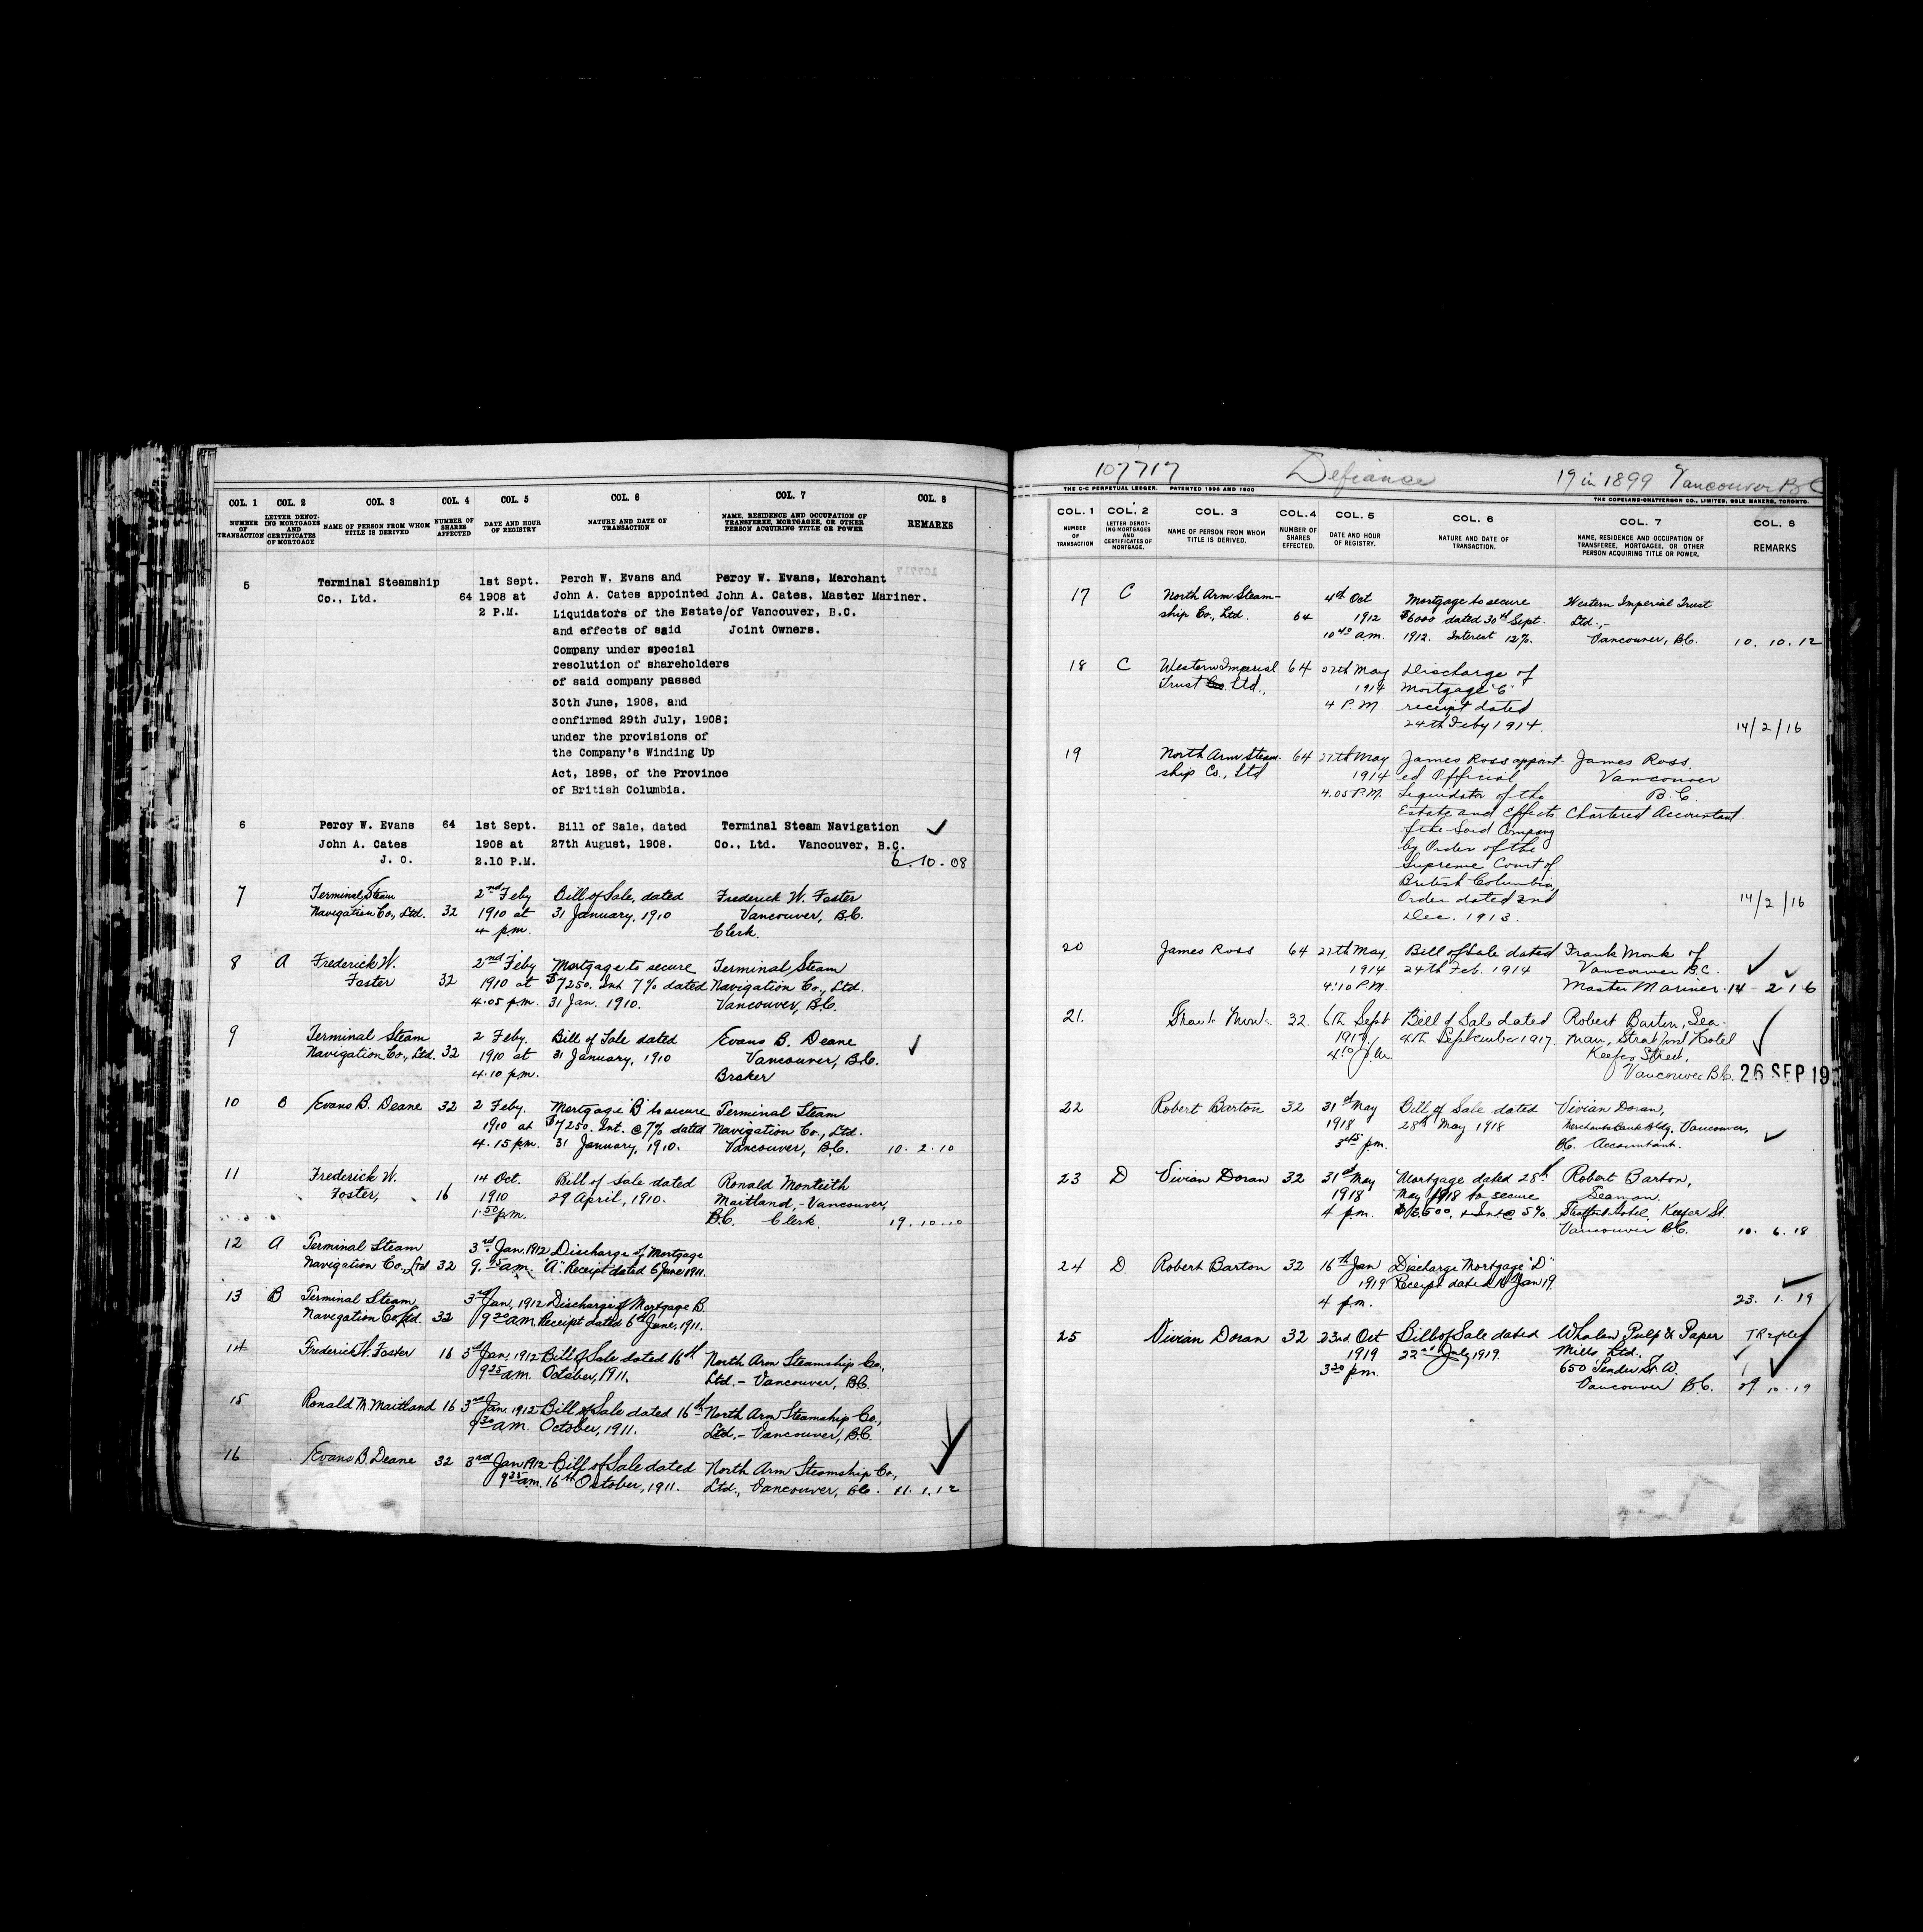 COL. 1 COL. 2 COL. 3 COL. 4 COL. 5 COL. 6 COL. 7 COL. 8
NUMBER OF TRANSACTION
LETTER DENOTING MORTGAGES AND CERTIFICATES OF MORTGAGE
NAME OF PERSON FROM WHOM TITLE IS DERIVED
NUMBER OF SHARES AFFECTED
DATE AND HOUR OF REGISTRY
NATURE AND DATE OF TRANSACTION
NAME, RESIDENCE AND OCCUPATION OF TRANSFEREE, MORTGAGEE, OR OTHER PERSON ACQUIRING TITLE OR POWER
REMARKS
5 Terminal Steamship 1st Sept. Perch W. Evans and Percy W. Evans, Merchant
Co., Ltd. 64 1908 at John A. Cates appointed John A. Cates, Master Mariner.
2 P.M. Liquidators of the Estate/of Vancouver, B.C.
and effects of said Joint Owners.
Company under special
resolution of shareholders
of said company passed
30th June, 1908, and
confirmed 29th July, 1908;
under the provisions of
the Company's Winding Up
Act, 1898, of the Province
of British Columbia.
6 Percy W. Evans 64 1st Sept. Bill of Sale, dated Terminal Steam Navigation
John A. Cates 1908 at 27th August, 1908. Co., Ltd. Vancouver, B.C.
J. O. 2.10 P.M. 6.10.08
7 Terminal Steam 2nd Feby Bill of Sale, dated Frederick W. Foster
Navigation Co., Ltd. 32 1910 at 31 January, 1910 Vancouver, B.C.
4 p.m. Clerk.
8 A Frederick W. 2nd Feby Mortgage to secure Terminal Steam
Foster 32 1910 at $7250. Int 7% dated Navigation Co., Ltd.
4.05 p.m. 31 Jan. 1910. Vancouver, B.C.
9 Terminal Steam 2 Feby. Bill of Sale dated Evans B. Deane
Navigation Co., Ltd. 32 1910 at 31 January, 1910 Vancouver, B.C.
4.10 p.m. Broker
10 B Evans B. Deane 32 2 Feby. Mortgage "B" to secure Terminal Steam
1910 at $7250. Int. @ 7% dated Navigation Co., Ltd.
4.15 p.m. 31 January, 1910. Vancouver, B.C. 10.2.10
11 Frederick W. 14 Oct. Bill of Sale dated Ronald Monteith
Foster, 16 1910 29 April, 1910. Maitland, - Vancouver,
1.50 p.m. B.C. Clerk. 19.10.10
12 A Terminal Steam 3rd Jan. 1912 Discharge of Mortgage
Navigation Co., Ltd 32 9.15 a.m. "A". Receipt dated 6 June 1911.
13 B Terminal Steam 3rd Jan, 1912 Discharge of Mortgage B.
Navigation Co. Ltd. 32 9 20 a.m. Receipt dated 6th June, 1911.
14 Frederick W. Foster 16 3rd Jan. 1912 Bill of Sale dated 16th North Arm Steamship Co.,
9 25 a.m. October, 1911. Ltd. - Vancouver, B.C.
15 Ronald M. Maitland 16 3rd Jan. 1912 Bill of Sale dated 16th North Arm Steamship Co.,
9 30 a.m. October, 1911. Ltd. - Vancouver, B.C.
16 Evans B. Deane 32 3rd Jan 1912 Bill of Sale dated North Arm Steamship Co.,
9 35 a.m. 16th October, 1911. Ltd., Vancouver, B.C. 11.1.12
107717 Defiance 19 in 1899 Vancouver B.C
THE C-C PERPETUAL LEDGER. PATENTED 1898 AND 1900
THE COPELAND-CHATTERSON CO., LIMITED, SOLE MAKERS, TORONTO.
COL. 1 COL. 2 COL. 3 COL. 4 COL. 5 COL. 6 COL. 7 COL. 8
NUMBER OF TRANSACTION
LETTER DENOTING MORTGAGES AND CERTIFICATES OF MORTGAGE.
NAME OF PERSON FROM WHOM TITLE IS DERIVED.
NUMBER OF SHARES EFFECTED.
DATE AND HOUR OF REGISTRY.
NATURE AND DATE OF TRANSACTION.
NAME, RESIDENCE AND OCCUPATION OF TRANSFEREE, MORTGAGEE, OR OTHER PERSON ACQUIRING TITLE OR POWER.
REMARKS
17 C North Arm Steam- 4th Oct Mortgage to secure Western Imperial Trust
ship Co., Ltd. 64 1912 $6000 dated 30th Sept. Ltd.,-
10 40 a.m. 1912. Interest 12%. Vancouver, B.C. 10.10.12
18 C Western Imperial 64 27th May Discharge of
Trust Co. Ltd., 1914 Mortgage "C"
4 P.M receipt dated
24th Feby 1914. 14/2/16
19 North Arm Steam- 64 27th May James Ross appoint- James Ross.
ship Co., Ltd 1914 ed Official Vancouver
4.05 P.M. Liquidator of the B.C.
Estate and Effects Chartered Accountant.
of the Said Company
by Order of the
Supreme Court of
British Columbia,
Order dated 2nd 14/2/16
Dec. 1913.
20 James Ross 64 27th May, Bill of Sale dated Frank Monk of
1914 24th Feb. 1914 Vancouver B.C.
4.10 P.M. Master Mariner. 14-2 16
21. Frank Monk 32. 6th Sept Bill of Sale dated Robert Barton, Sea-
1917 4th September 1917. man, Stratford Hotel
4 10 Keefer Street,
Vancouver B.C. 26 SEP 19
22 Robert Barton 32 31st May Bill of Sale dated Vivian Doran,
1918 28th May 1918 Merchants Bank Bldg, Vancouver,
3 45 p.m. B.C. Accountant.
23 D Vivian Doran 32 31st May Mortgage dated 28th Robert Barton,
1918 May 1918 to secure Seaman.
4 p.m. & Int @ 5% Stratford Hotel, Keefer St.
Vancouver B.C. 10.6.18
24 D Robert Barton 32 16th Jan Discharge Mortgage "D"
1919 Receipt dated Jan 19.
4 p.m. 23.1.19
25 Vivian Doran 32 23rd Oct Bill of Sale dated Whalen Pulp & Paper
1919 22nd July 1919. Mills Ltd.
3 30 p.m. 650 Pender St. W.
Vancouver B.C. 29.10.19